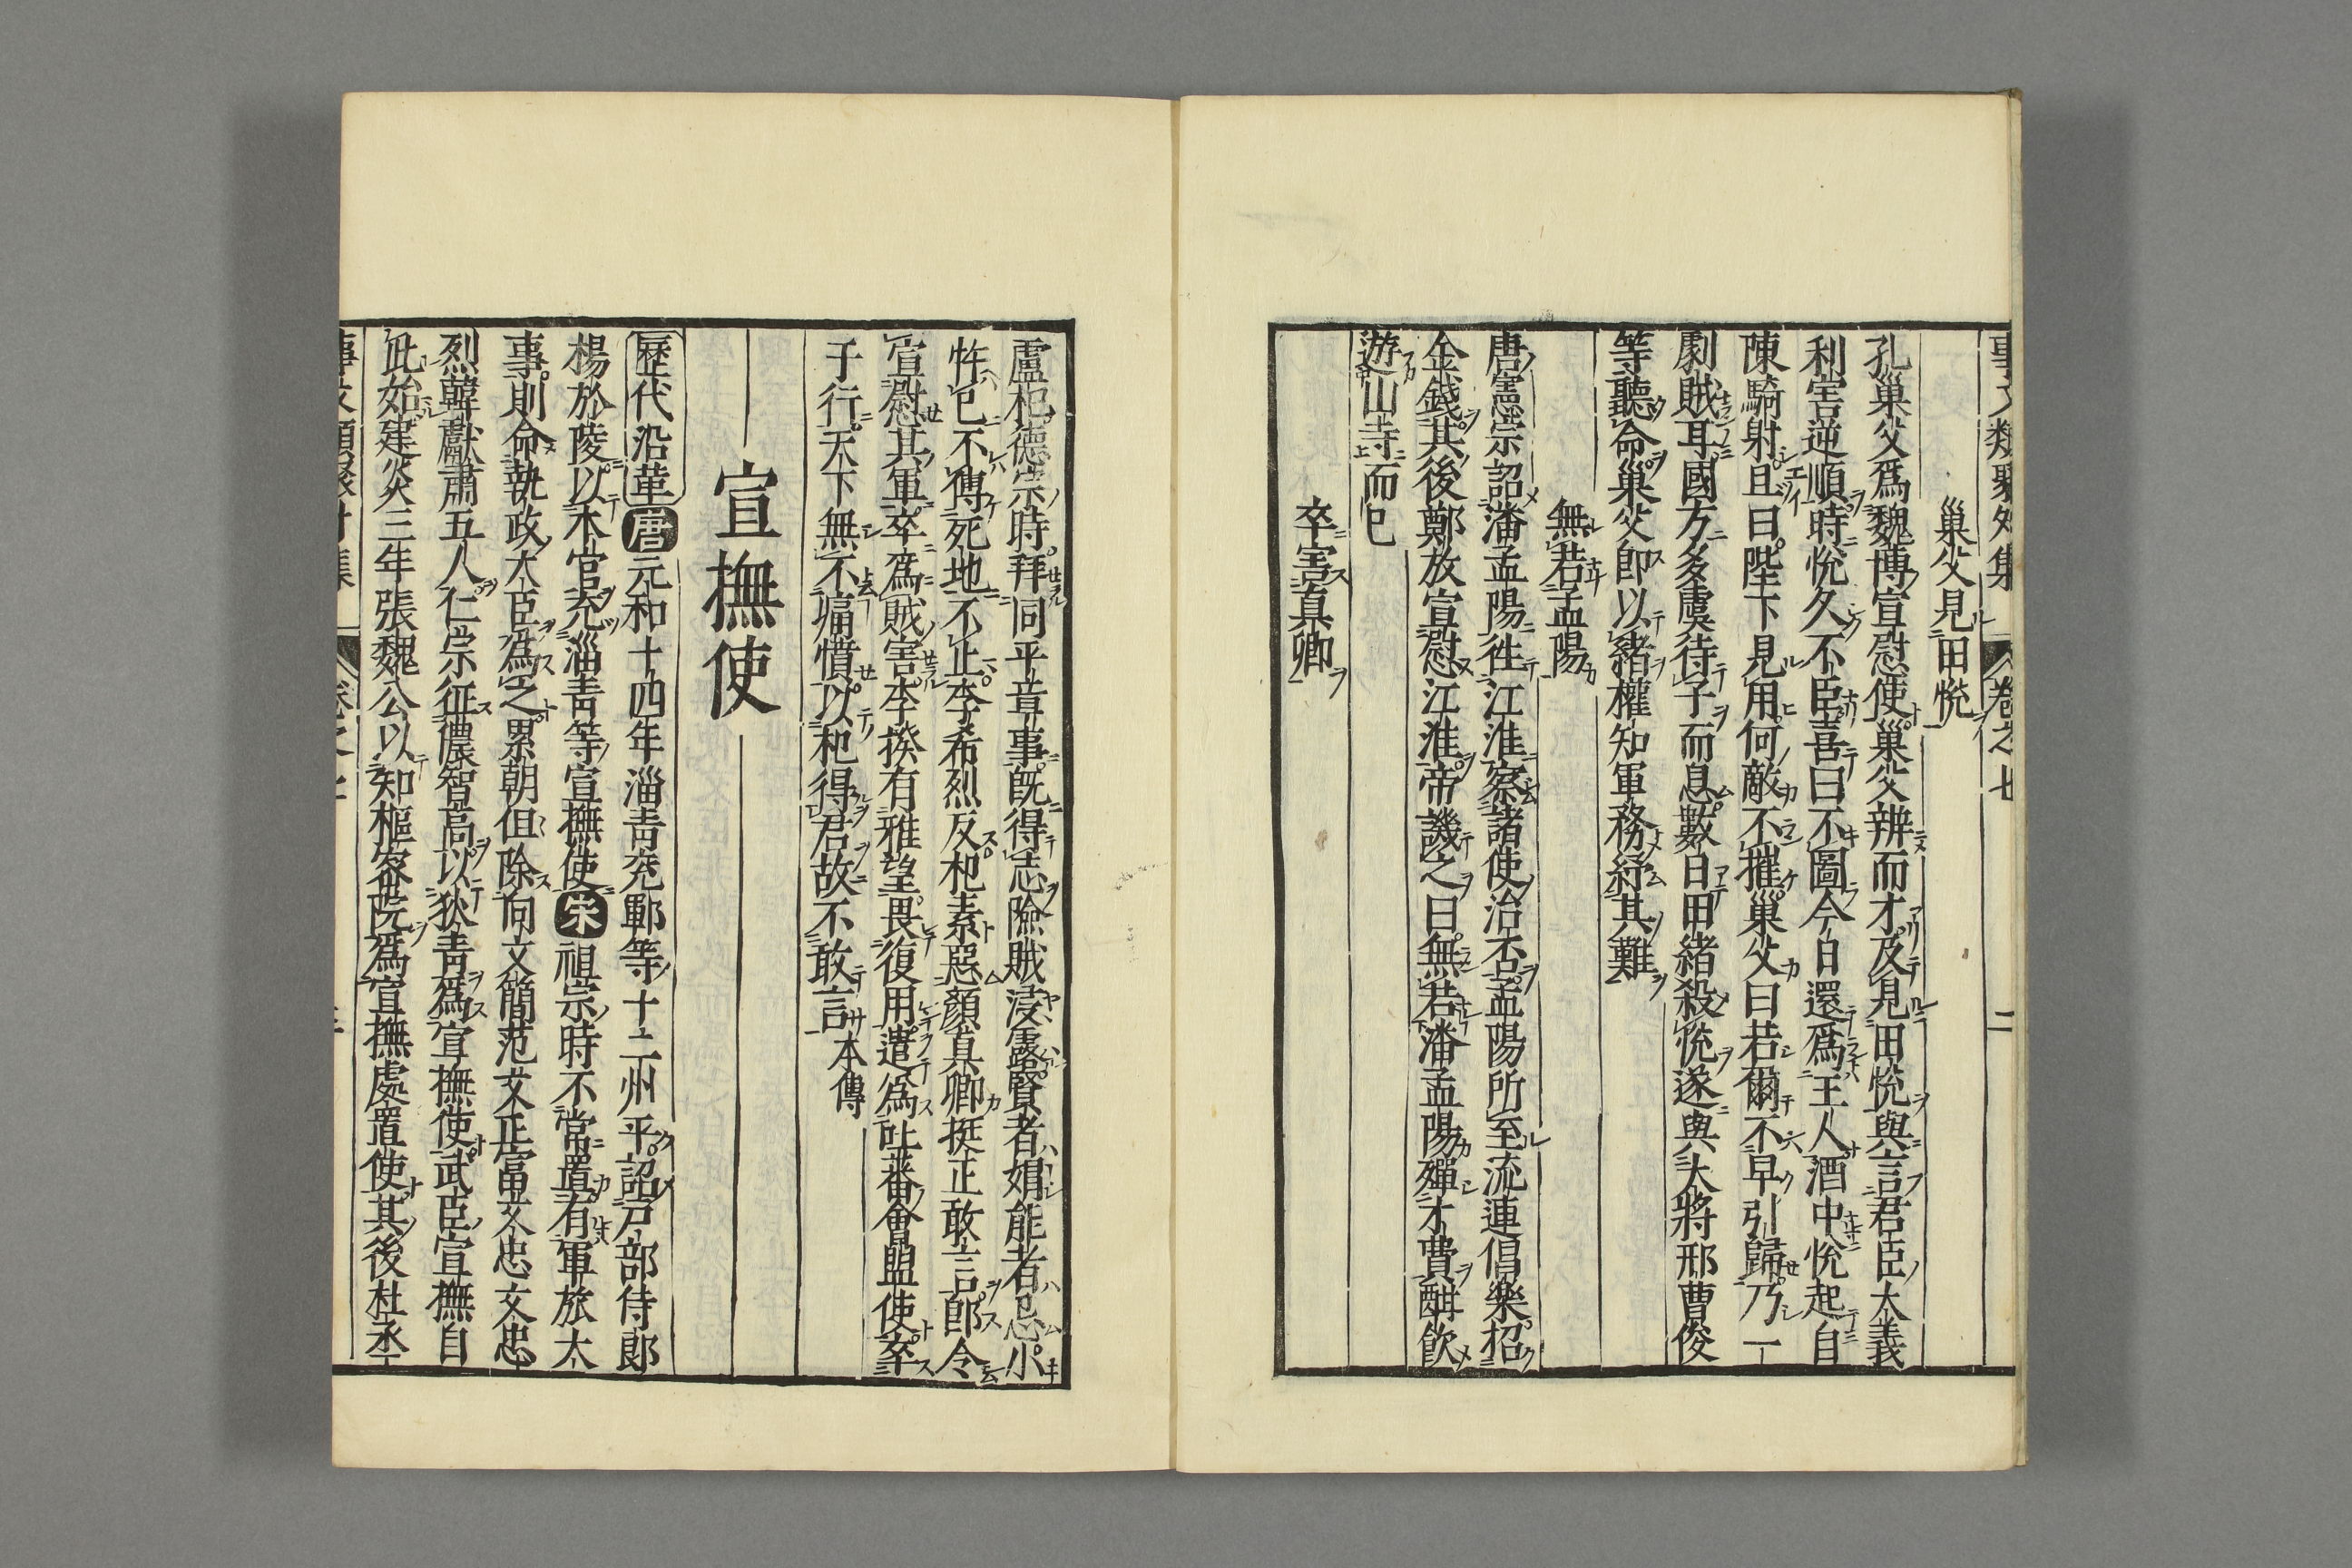 事文類聚外集　卷之七　二
巢父見田悅
孔巢父爲魏博宣慰使巢父辨而才及見田悅與言君臣大義
利害逆順時悅久不臣喜曰不圖今日還爲王人酒中悅起自
陳騎射且曰陛下見用何敵不摧巢父曰若爾不早引歸乃一
劇賊耳國方多虞待子而息數日田緒殺悅遂與大將邢曹俊
等聽命巢父卽以緒權知軍務紓其難
無若孟陽
唐憲宗詔潘孟陽徃江淮察諸使治否孟陽所至流連倡樂招
金錢其後鄭放宣慰江淮帝譏之曰無若潘孟陽殫才費酣飮
遊山寺而已
卒害真卿
盧杞德宗時拜同平章事旣得志險賊浸露賢者媢能者忌小
忤已不傅死地不止李希烈反杞素惡顏真卿挺正敢言卽令
宣慰其軍卒爲賊害李揆有雅望畏復用遣爲吐蕃會盟使卒
于行天下無不痛憤以杞得君故不敢言本傳
宣撫使
歷代沿革唐元和十四年淄靑兗鄆等十二州平詔戸部侍郞
楊於陵以本官充淄靑等宣撫使宋祖宗時不常置有軍旅大
事則命執政大臣爲之累朝但除向文簡范文正富文忠文忠
烈韓獻肅五人仁宗征儂智高以狄靑爲宣撫使武臣宣撫自
此始建炎三年張魏公以知樞密院爲宣撫處置使其後杜丞